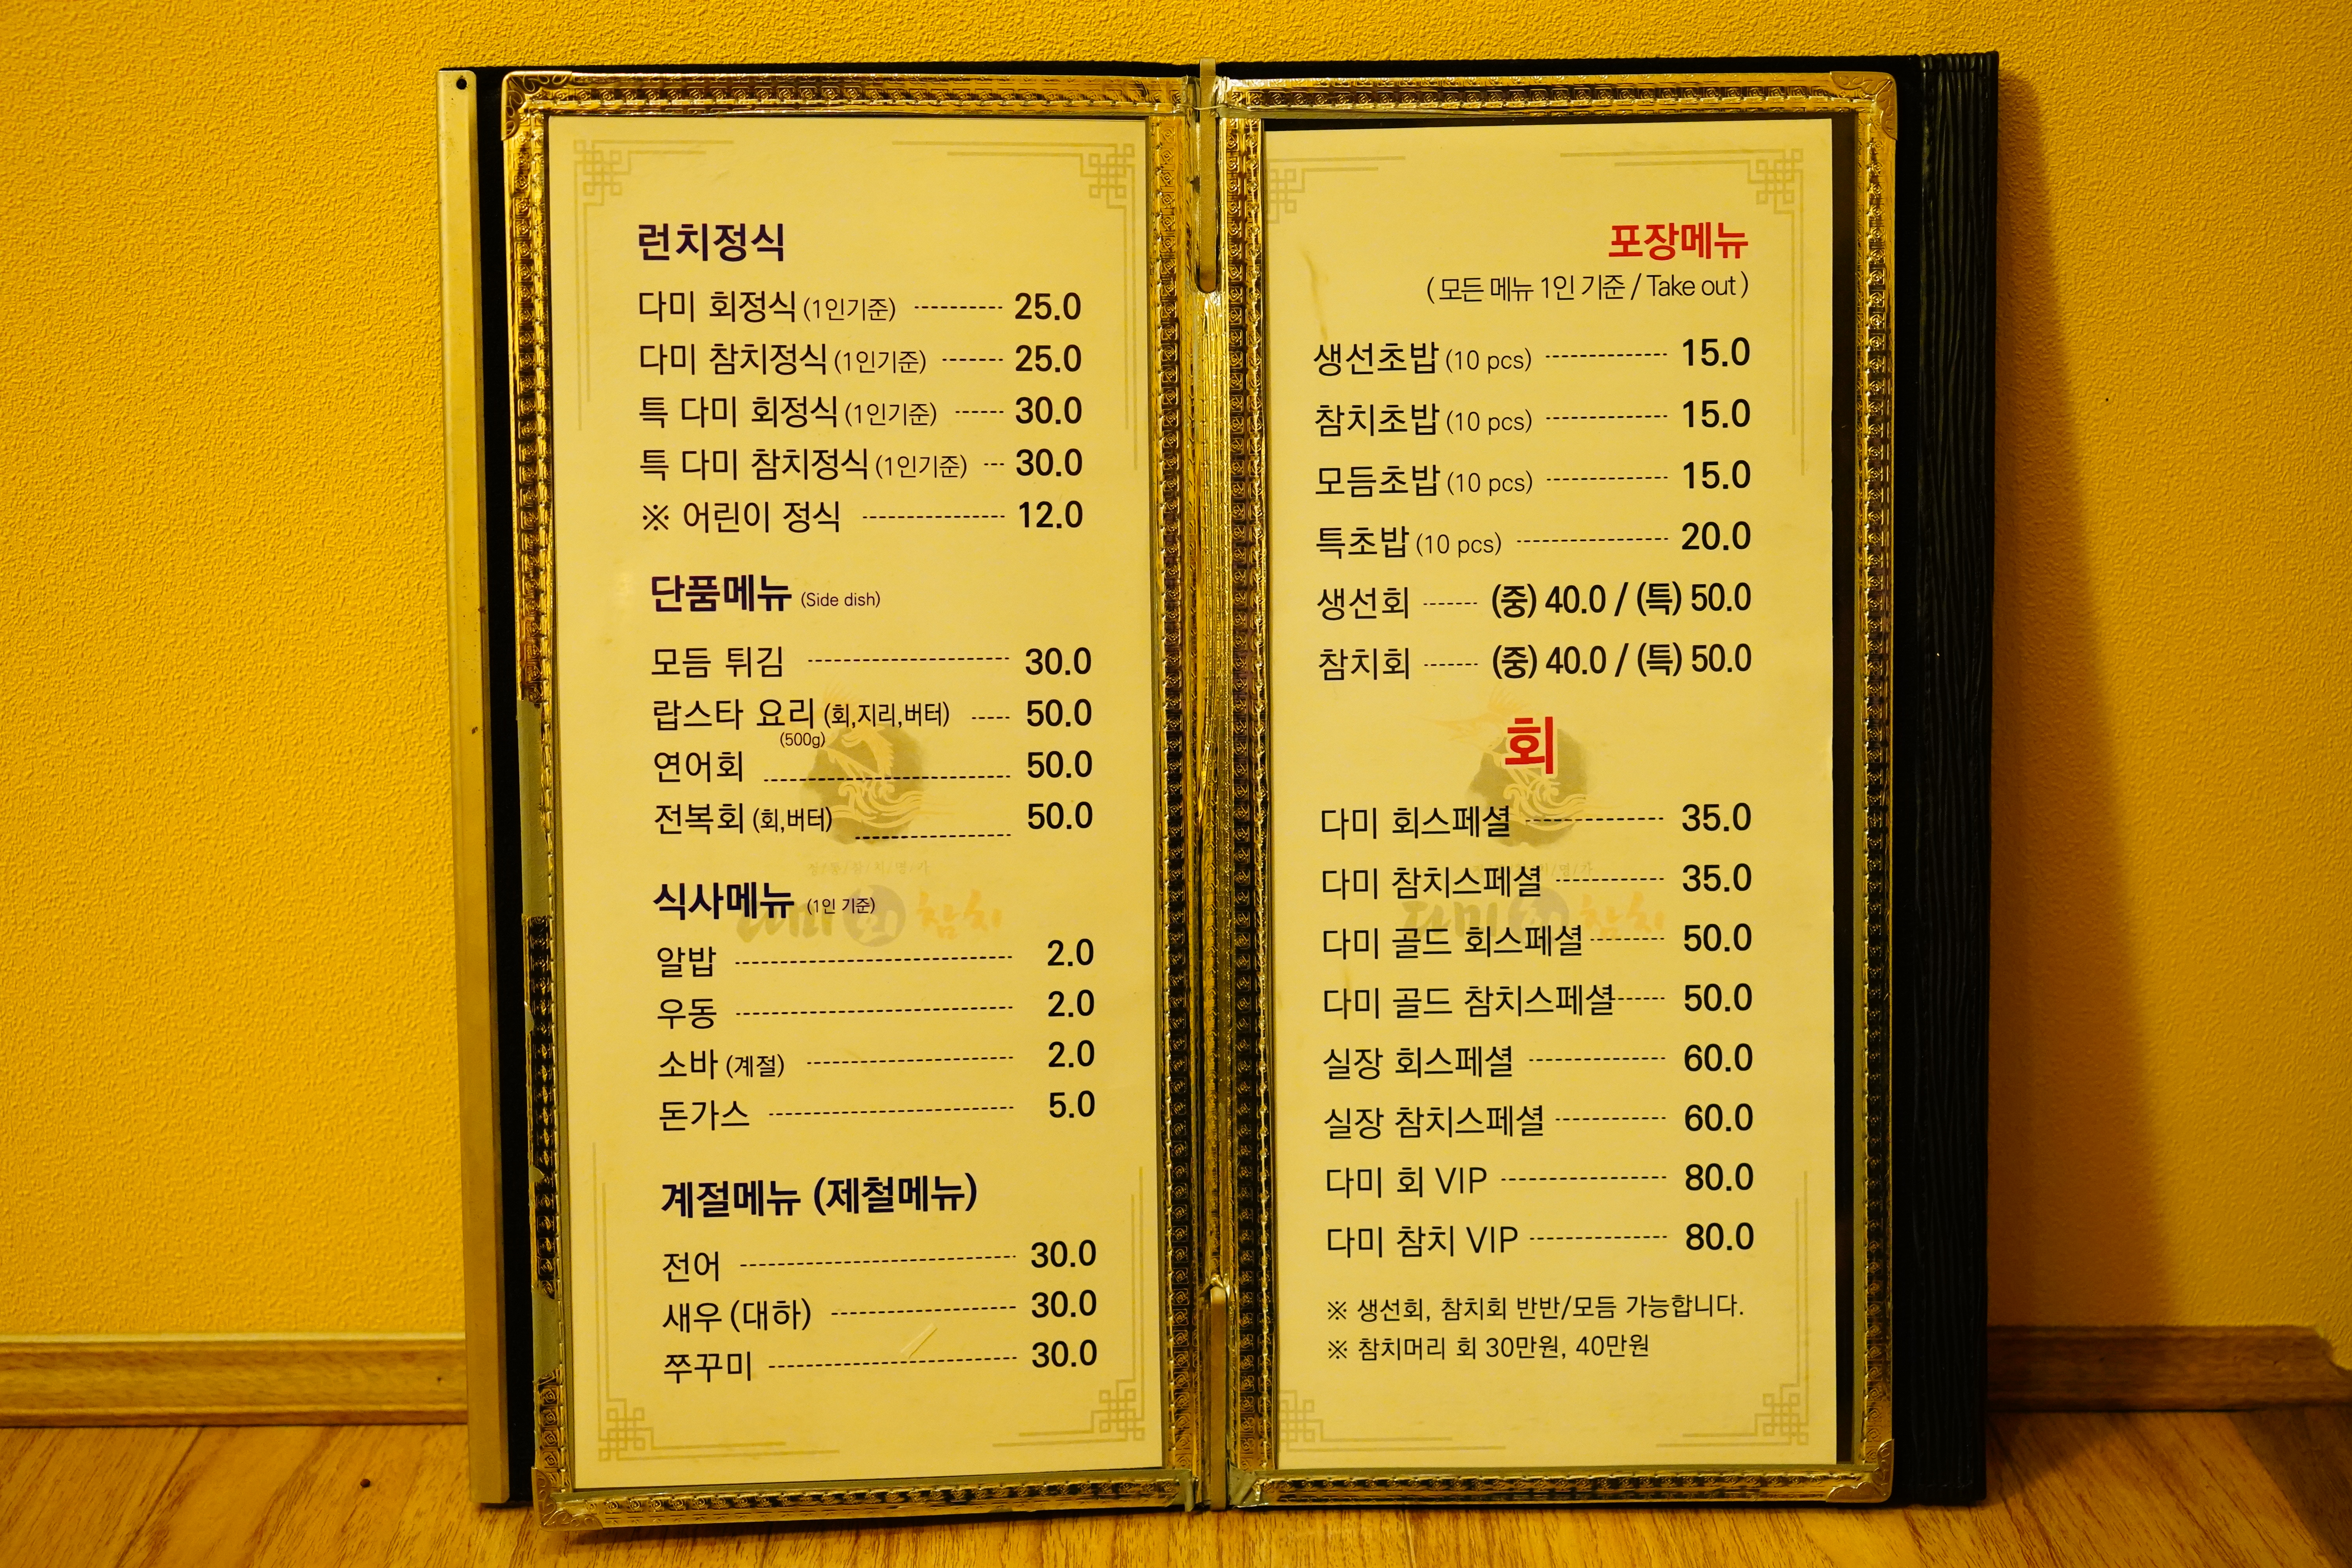 런치정식
다미 회정식 (1인기준) 25.0
다미 참치정식 (1인기준) 25.0
특 다미 회정식 (1인기준) 30.0
특 다미 참치정식 (1인기준) 30.0
※ 어린이 정식 12.0
단품메뉴 (Side dish)
모듬 튀김 30.0
랍스타 요리 (회,지리,버터) 50.0
(500g)
연어회 50.0
전복회 (회,버터) 50.0
식사메뉴 (1인 기준)
알밥 2.0
우동 2.0
소바 (계절) 2.0
돈가스 5.0
계절메뉴 (제철메뉴)
전어 30.0
새우 (대하) 30.0
쭈꾸미 30.0
다미 회 참치
포장메뉴
( 모든 메뉴 1인 기준 / Take out )
생선초밥 (10 pcs) 15.0
참치초밥 (10 pcs) 15.0
모듬초밥 (10 pcs) 15.0
특초밥 (10 pcs) 20.0
생선회 (중) 40.0 / (특) 50.0
참치회 (중) 40.0 / (특) 50.0
회
다미 회스페셜 35.0
다미 참치스페셜 35.0
다미 골드 회스페셜 50.0
다미 골드 참치스페셜 50.0
실장 회스페셜 60.0
실장 참치스페셜 60.0
다미 회 VIP 80.0
다미 참치 VIP 80.0
※ 생선회, 참치회 반반/모듬 가능합니다.
※ 참치머리 회 30만원, 40만원